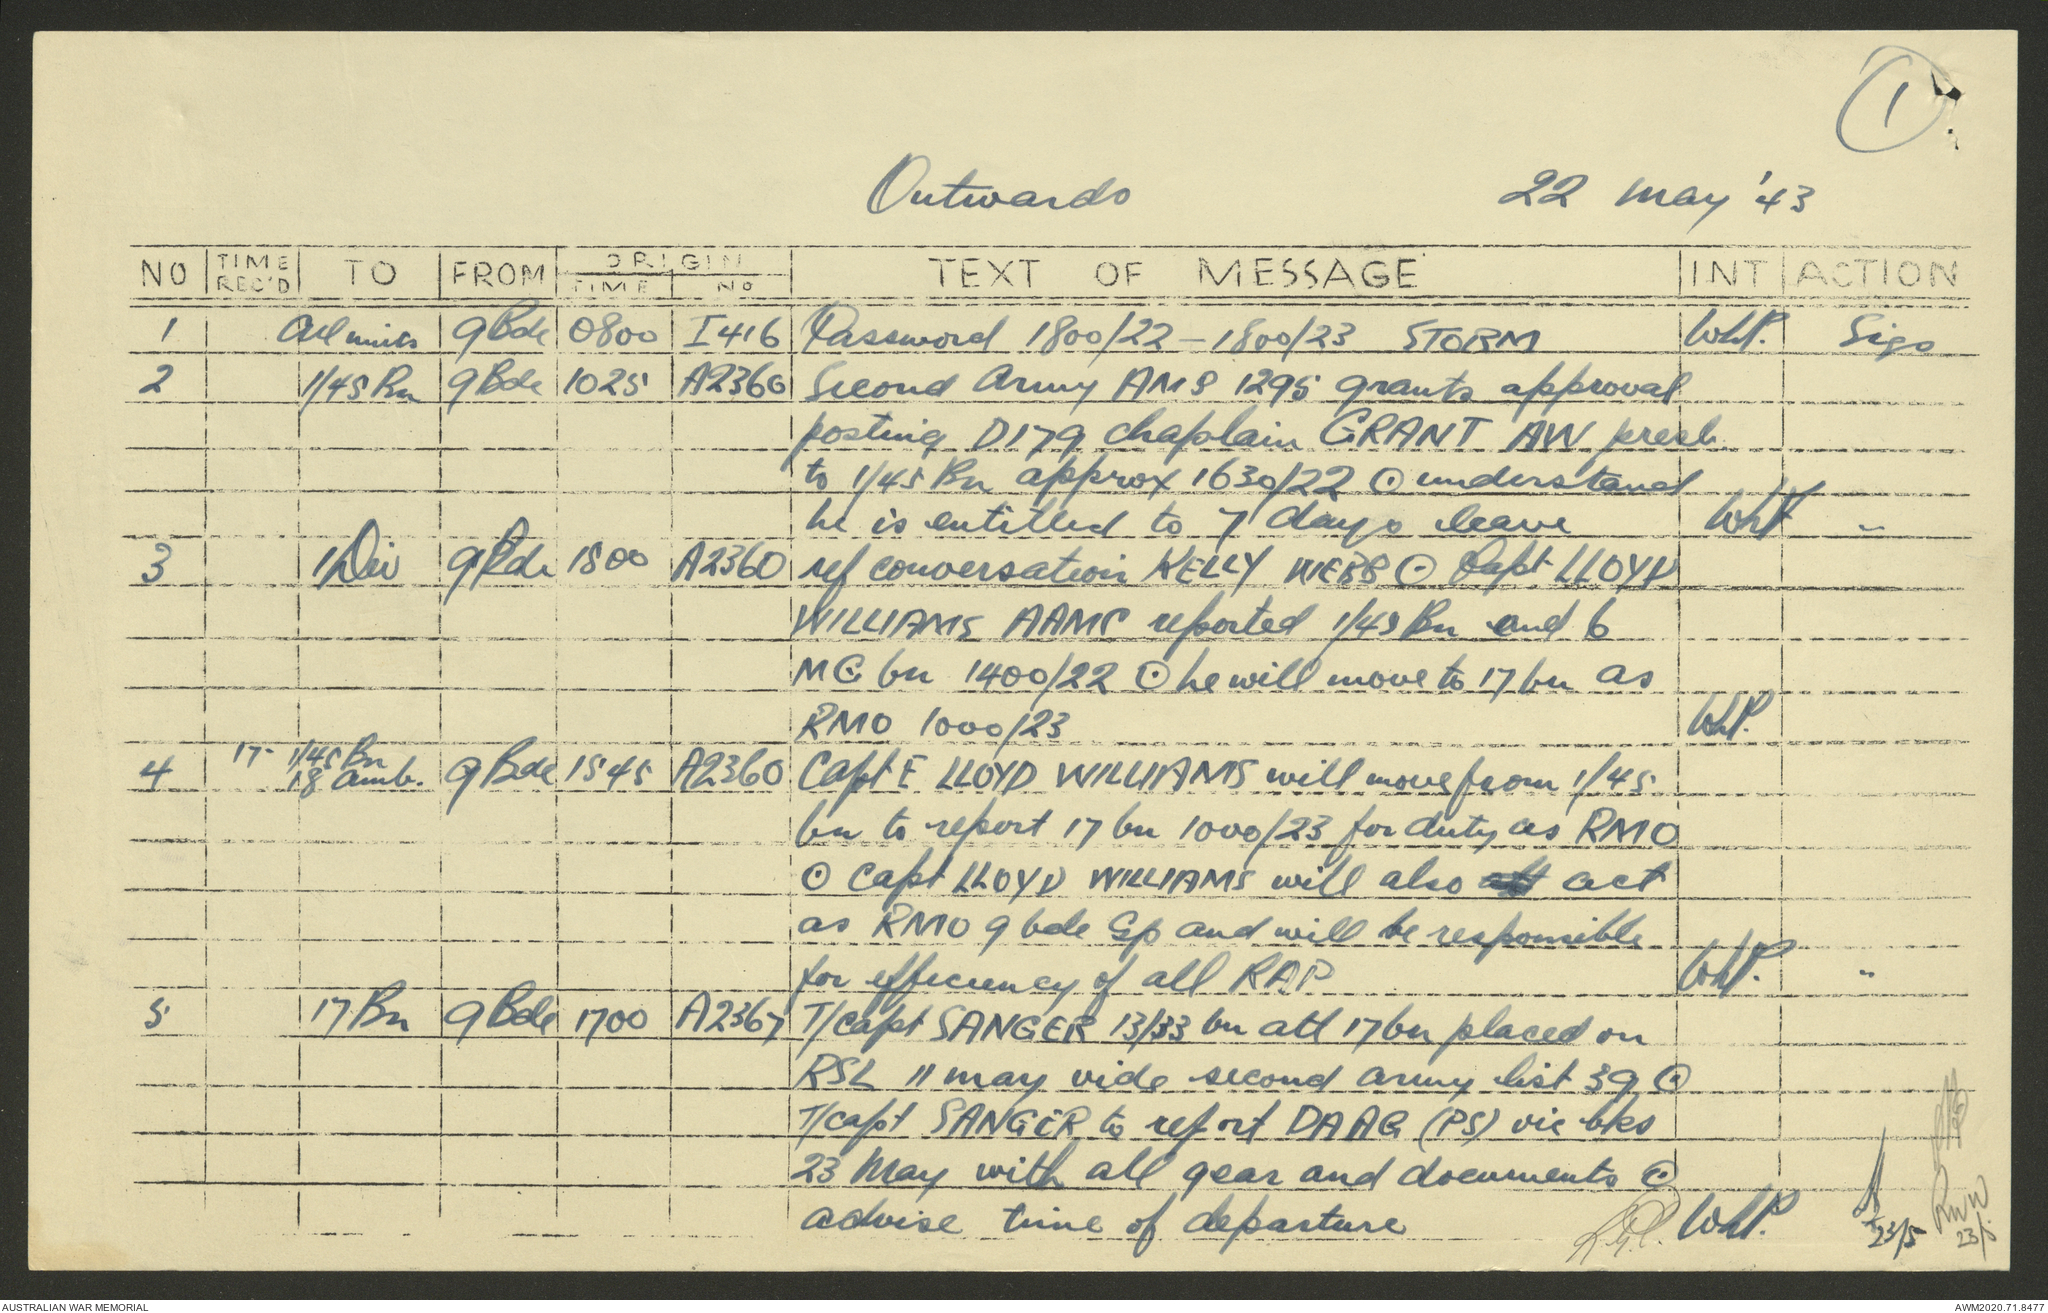 1
Outwards 22 May '43
NO TIME REC'D TO FROM ORIGIN TIME NO TEXT OF MESSAGE INT ACTION
1 All units 9 Bde 0800 I416 Password 1800/22 - 1800/23 STORM WhP. Sigs
2 1/45 Bn 9 Bde 1025 A2360 Second Army AMS 1295 grants approval
posting D179 chaplain GRANT AW presb.
to 1/45 Bn approx 1630/22 ⊙ understand
he is entitled to 7 days leave WhP "
3 1 Div 9 Bde 1500 A2360 ref conversation KELLY WEBB ⊙ Capt LLOYD
WILLIAMS AAMC reported 1/45 Bn and 6
MG bn 1400/22 ⊙ he will move to 17 bn as
RMO 1000/23 WhP.
4 17 - 1/45 Bn
18 amb. 9 Bde 1545 A2360 Capt E LLOYD WILLIAMS will move from 1/45
bn to report 17 bn 1000/23 for duty as RMO
⊙ Capt LLOYD WILLIAMS will also act
as RMO 9 bde Gp and will be responsible
for efficiency of all RAP WhP. "
5 17 Bn 9 Bde 1700 A2367 T/Capt SANGER 13/33 bn att 17 bn placed on
RSL 11 may vide second army list 39 ⊙
T/capt SANGER to report DAAG (PS) vic bks
23 May with all gear and documents ⊙
advise time of departure WhP.
23/5
RWW
23/5
AUSTRALIAN WAR MEMORIAL AWM2020.71.8477